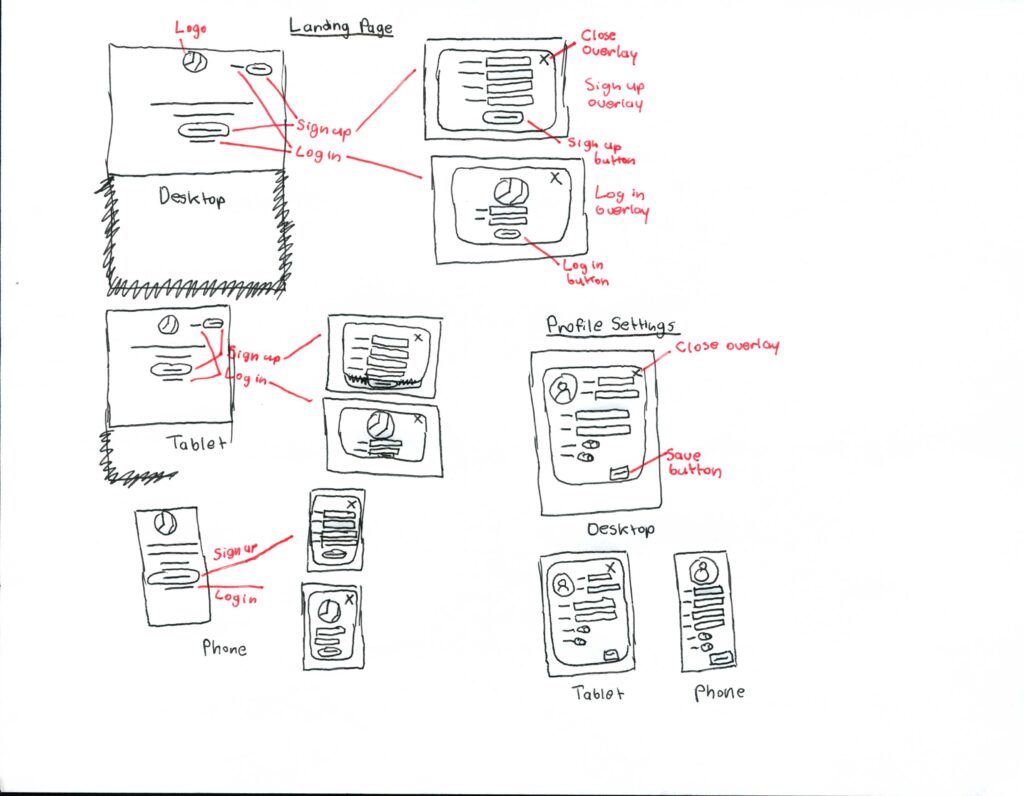 Landing Page
Logo
Close
overlay
Sign up
overlay
Sign up
Log in
Sign up
button
Desktop
Log in
overlay
Log in
button
Sign up
Log in
Tablet
Profile Settings
Close overlay
Save
button
Desktop
Sign up
Log in
Phone
Tablet
Phone